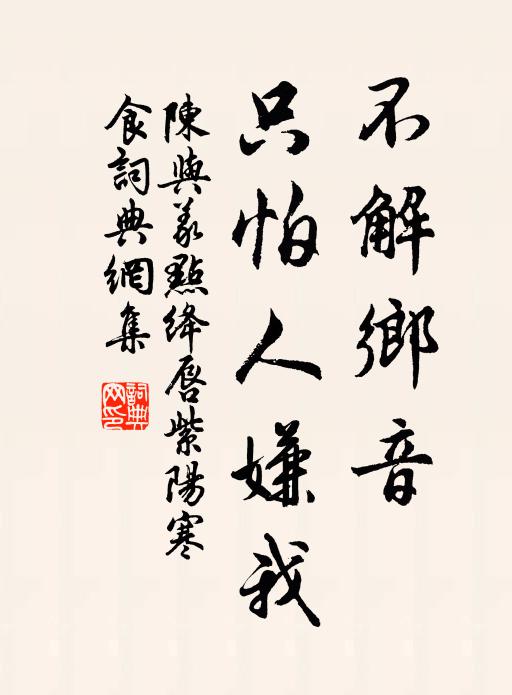 不解鄉音
只怕人嫌我
陳與義點絳唇紫陽寒
食詞典網集
詞典网印